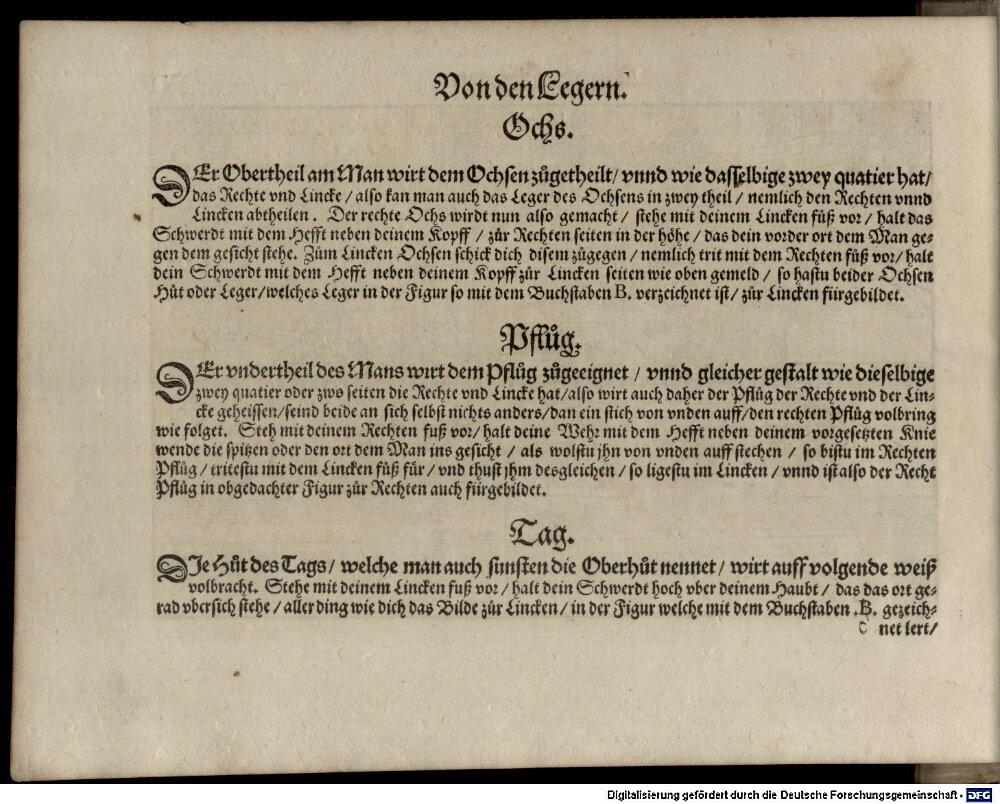 Von den Legern.
Ochs.
DEr Obertheil am Man wirt dem Ochsen zůgetheilt/ vnnd wie dasselbige zwey quatier hat/
das Rechte vnd Lincke / also kan man auch das Leger des Ochsens in zwey theil / nemlich den Rechten vnnd
Lincken abtheilen . Der rechte Ochs wirdt nun also gemacht / stehe mit deinem Lincken fůß vor / halt das
Schwerdt mit dem Hefft neben deinem Kopff / zůr Rechten seiten in der höhe / das dein vorder ort dem Man ge-
gen dem gesicht stehe. Zům Lincken Ochsen schick dich disem zůgegen / nemlich trit mit dem Rechten fůß vor/ halt
dein Schwerdt mit dem Hefft neben deinem Kopff zůr Lincken seiten wie oben gemeld / so hastu beider Ochsen
Hůt oder Leger/welches Leger in der Figur so mit dem Buchstaben B. verzeichnet ist/ zůr Lincken fürgebildet.
Pflůg.
DEr vndertheil des Mans wirt dem Pflůg zůgeeignet / vnnd gleicher gestalt wie dieselbige
zwey quatier oder zwo seiten die Rechte vnd Lincke hat/also wirt auch daher der Pflůg der Rechte vnd der Lin-
cke geheissen/seind beide an sich selbst nichts anders/dan ein stich von vnden auff/den rechten Pflůg volbring
wie folget. Steh mit deinem Rechten fuß vor/ halt deine Wehr mit dem Hefft neben deinem vorgesetzten Knie
wende die spitzen oder den ort dem Man ins gesicht / als wolstu jhn von vnden auff stechen / so bistu im Rechten
Pflůg / tritestu mit dem Lincken fůß für / vnd thust jhm desgleichen / so ligestu im Lincken / vnnd ist also der Recht
Pflůg in obgedachter Figur zůr Rechten auch fürgebildet.
Tag.
DJe Hůt des Tags/ welche man auch sunsten die Oberhůt nennet/ wirt auff volgende weiß
volbracht. Stehe mit deinem Lincken fuß vor/ halt dein Schwerdt hoch vber deinem Haubt / das das ort ge-
rad vbersich stehe / aller ding wie dich das Bilde zůr Lincken / in der Figur welche mit dem Buchstaben .B. gezeich-
C net lert/
Digitalisierung gefördert durch die Deutsche Forschungsgemeinschaft - DFG